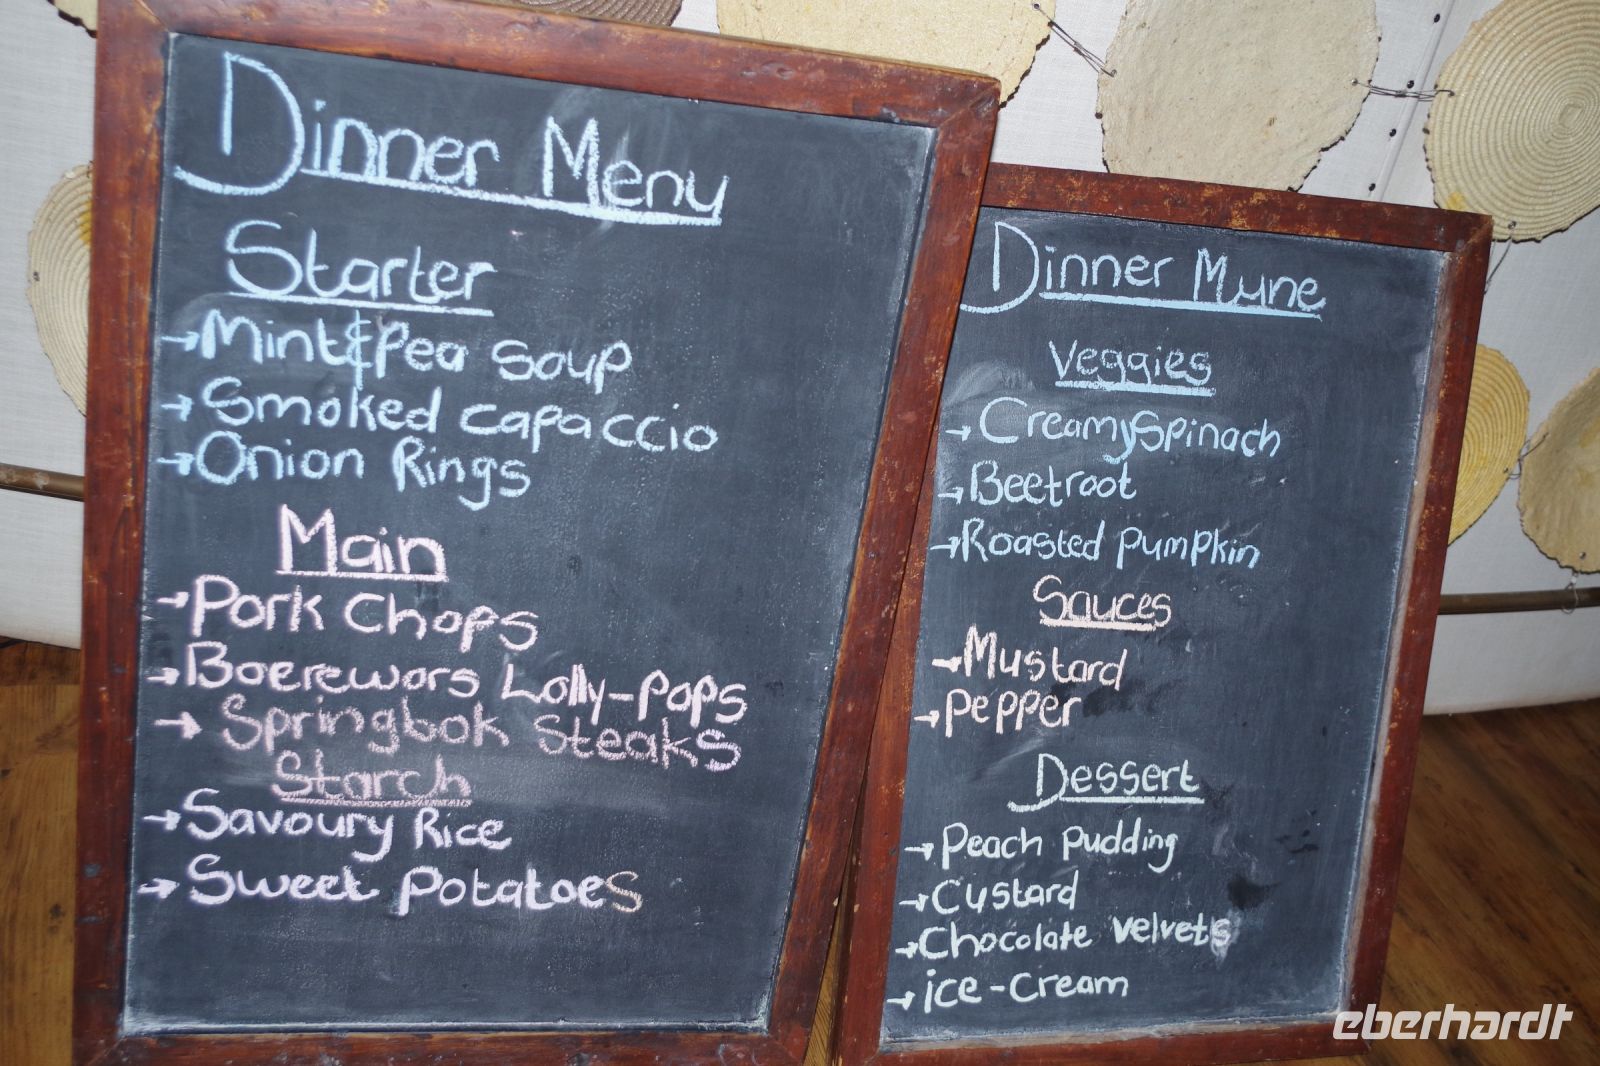 Dinner Menu
Starter
→Mint&Pea Soup
→Smoked capaccio
→Onion Rings
Main
→Pork Chops
→Boerewors Lolly-pops
→Springbok Steaks
Starch
→Savoury Rice
→Sweet Potatoes
Dinner Mune
Veggies
→CreamySpinach
→Beetroot
→Roasted pumpkin
Sauces
→Mustard
→pepper
Dessert
→Peach pudding
→Custard
→Chocolate velvets
→ice-Cream
eberhardt